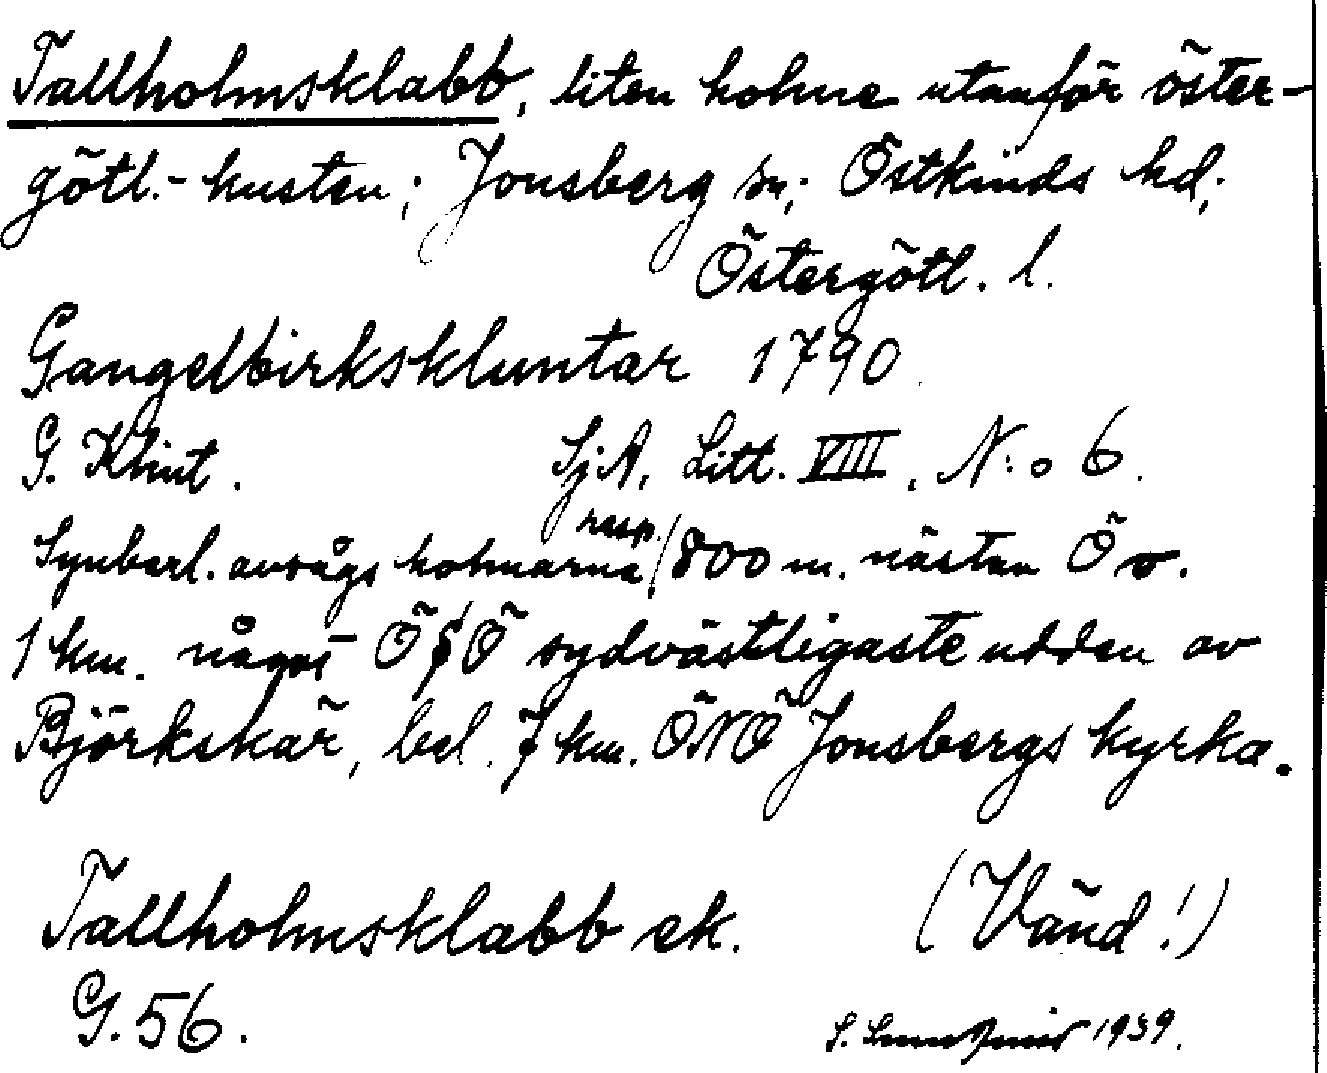 Tallholmsklabb, liten holme utanför öster-
götl.-kusten; Jonsberg sn; Östkinds hd;
Östergötl. l.
Gangelbirkskluntar 1790.
G. Klint. SjA, Litt. VIII, N:o 6.
Synbarl. avsågs holmarna resp. 800 m. nästan Ö o.
1 km. något ÖSÖ sydvästligaste udden av
Björkskär, bel. 7 km. ÖNÖ Jonsbergs kyrka.
Tallholmsklabb ek. (Vänd!)
G. 56.
S. 1939.